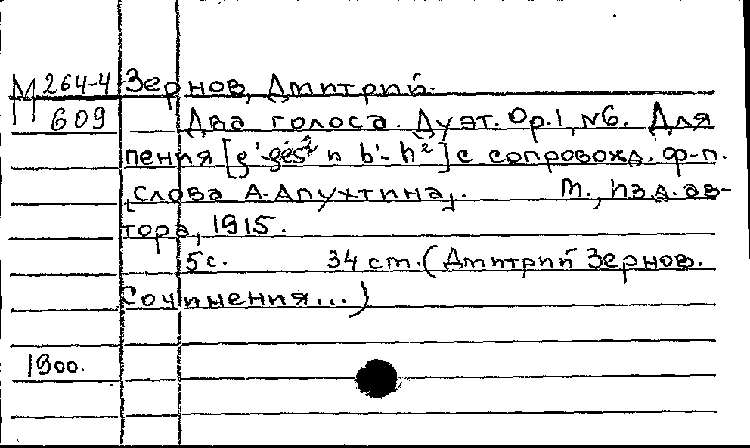 М 264-4 Зернов, Дмитрий.
609 Два голоса. Дуэт. Op.1, №6. Для
пения [g'-ges² и b'-h²] с сопровожд. ф-п.
[Слова А. Апухтина]. М., изд. ав-
тора, 1915.
5с. 34 см. (Дмитрий Зернов.
Сочинения...)
1900.